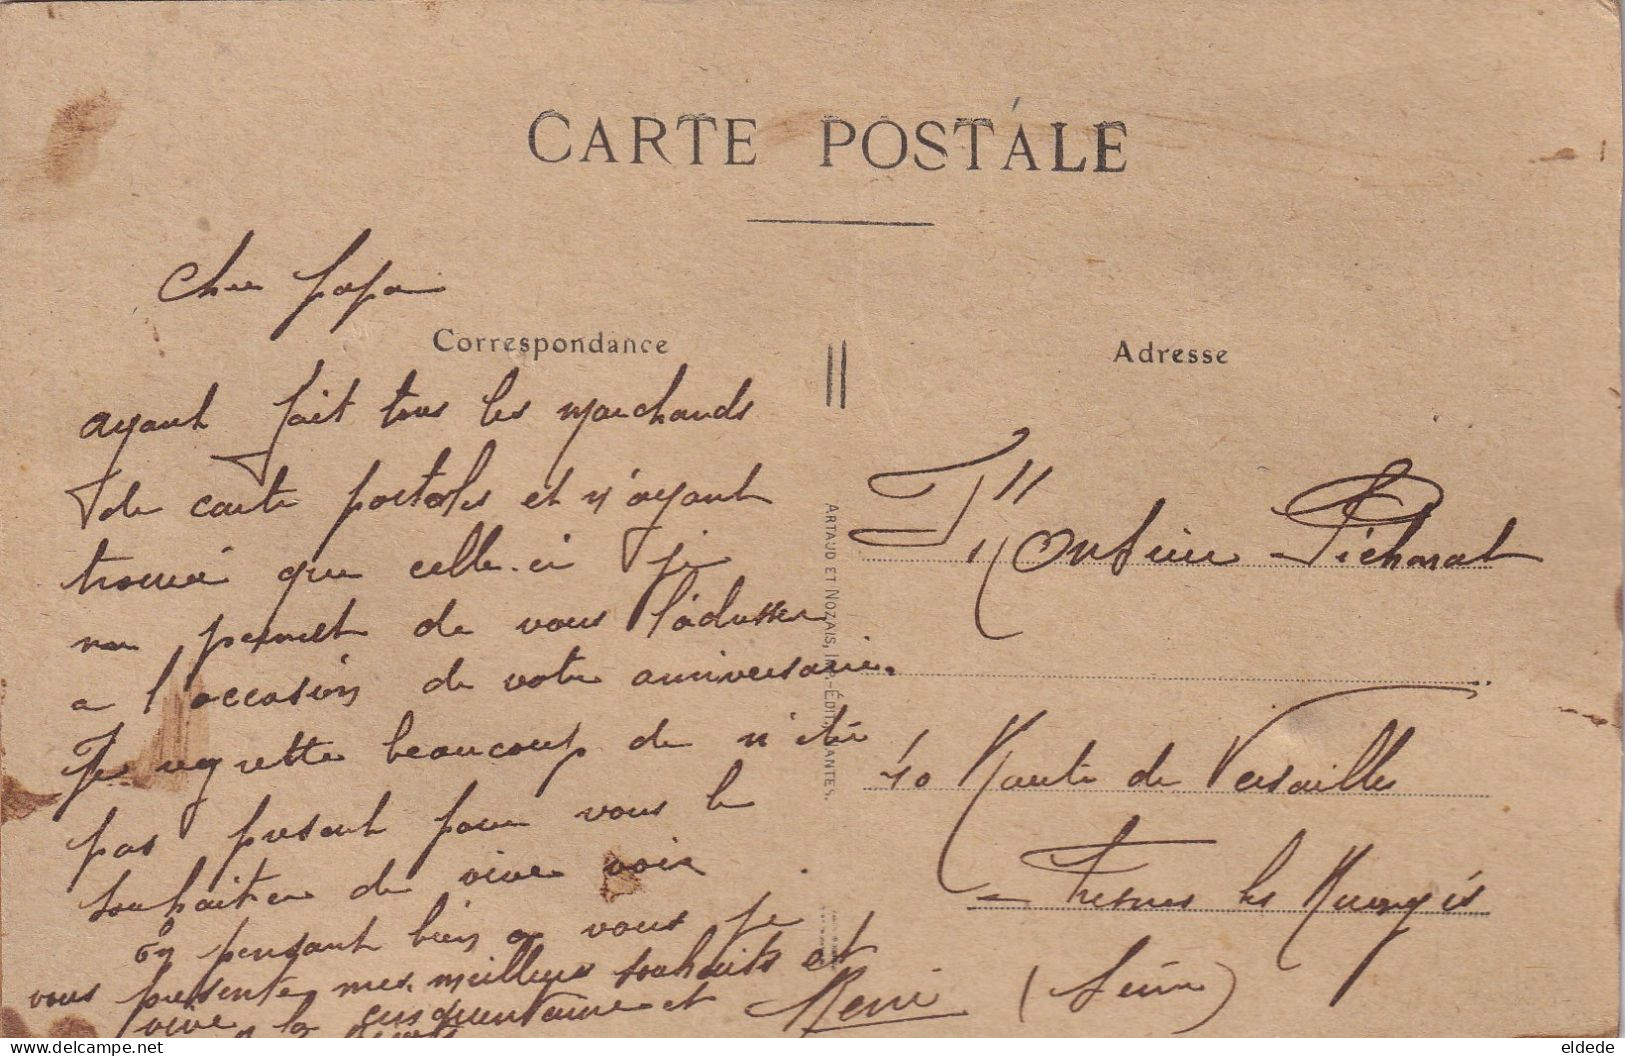 CARTE POSTALE
Cher papa
Correspondance
ayant fait tous les marchands
de carte postales et n'ayant
trouvé que celle-ci je
me permet de vous l'adresser
a l'occasion de votre anniversaire.
Je regrette beaucoup de n'être
pas present pour vous le
souhaiter de vive voix
En pensant bien a vous je
vous presente mes meilleurs souhaits et
vive la cinquantaine et
René
ARTAUD ET NOZAIS, IMP.-ÉDIT., NANTES.
Adresse
Monsieur Pichonat
40 Route de Versailles
Fresnes les Rungis
(Seine)
eldede
delcampe.net